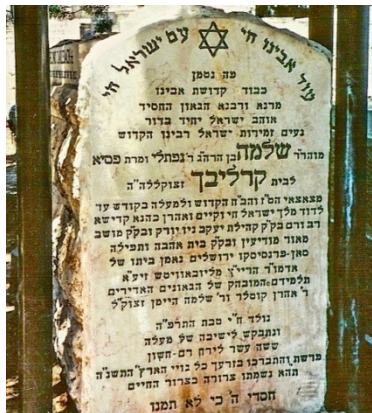 עוד אבינו חי עם ישראל חי
מה נטמן
כבוד קדושת אבינו
מרנא ורבנא הגאון החסיד
אוהב ישראל יחיד בדור
נעים זמירות ישראל רבינו הקדוש
מוהר"ר שלמה בן הרה"ג ר' נפתלי ומרת פסיא
לבית קרליבך זצוקללה"ה
מצאצאי הט"ז והב"ח הקדוש ולמעלה בקודש עד
לדוד מלך ישראל חי וקיים ואהרן כהנא קדישא
רב ורם בק"ק קהילת יעקב ניו יורק ובק"ק מושב
מאור מודיעין ובק"ק בית אהבה ותפילה
סאן-פרנסיסקו ירושלים נאמן ביתו של
אדמו"ר הריי"צ מליובאוויטש זיע"א
תלמידם המובהק של הגאונים האדירים
ר' אהרן קוטלר ור' שלמה היימן זצוק"ל
נולד ח"י טבת התרפ"ה
ונתבקש לישיבה של מעלה
ששה עשר לירח רם-חשון
פרשת והתברכו בזרעך כל גויי הארץ התשנ"ה
תהא נשמתו צרורה בצרור החיים
חסדי ה' כי לא תמנו